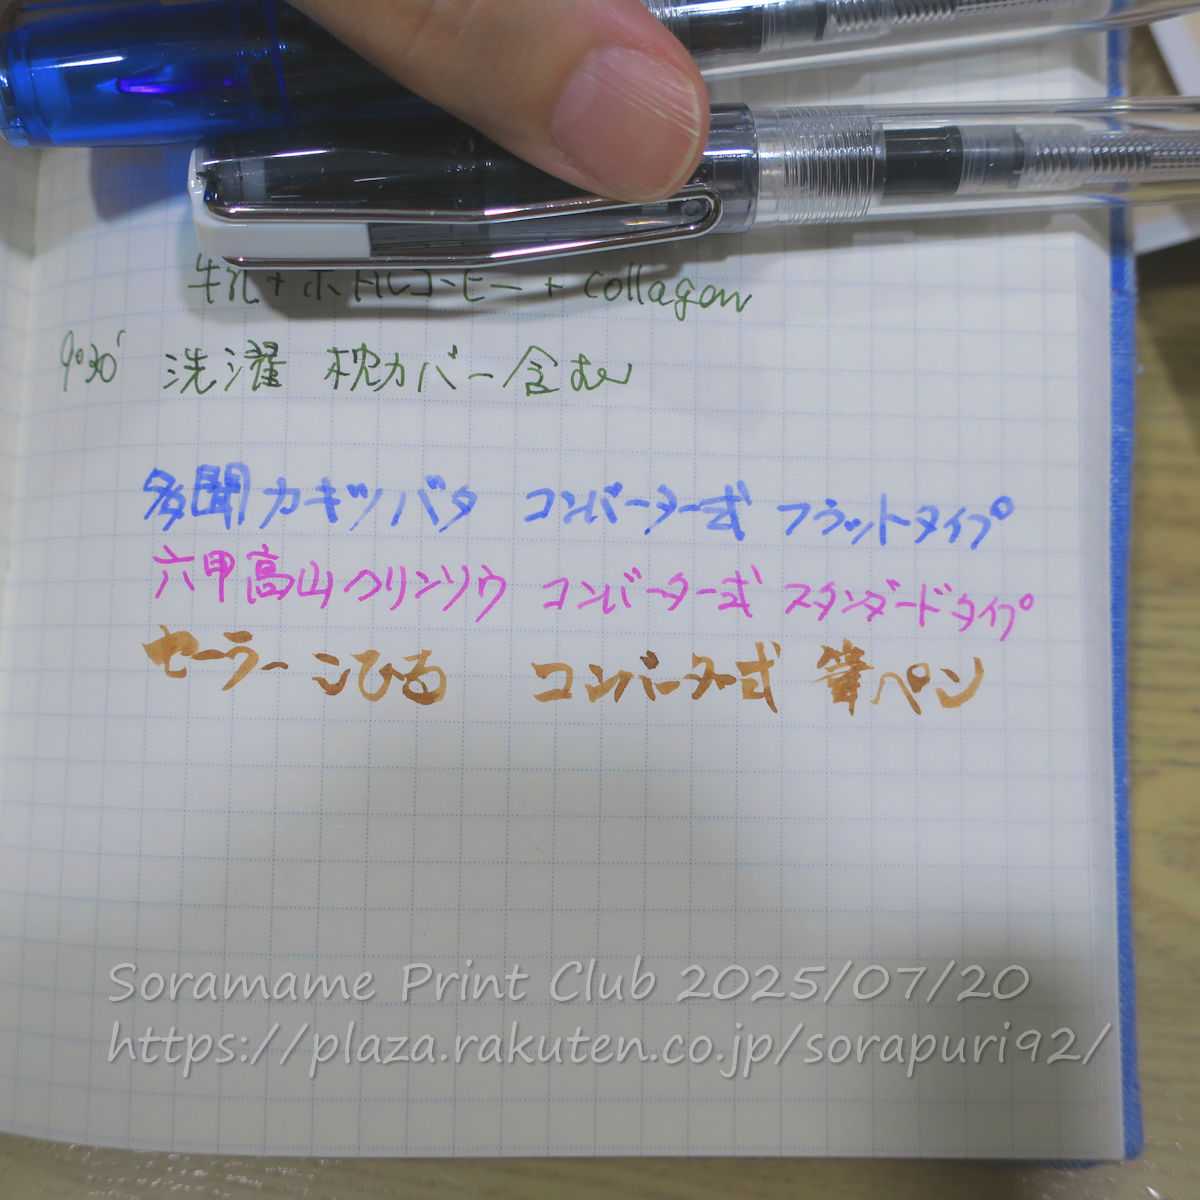 牛乳+ボトルコーヒー + collagen
9°30' 洗濯 枕カバー含む
多聞カキツバタ コンバーター式 フラットタイプ
六甲高山クリンソウ コンバーター式 スタンダードタイプ
セーラー こひる コンバーター式 筆ペン
Soramame Print Club 2025/07/20
https://plaza.rakuten.co.jp/sorapuri92/